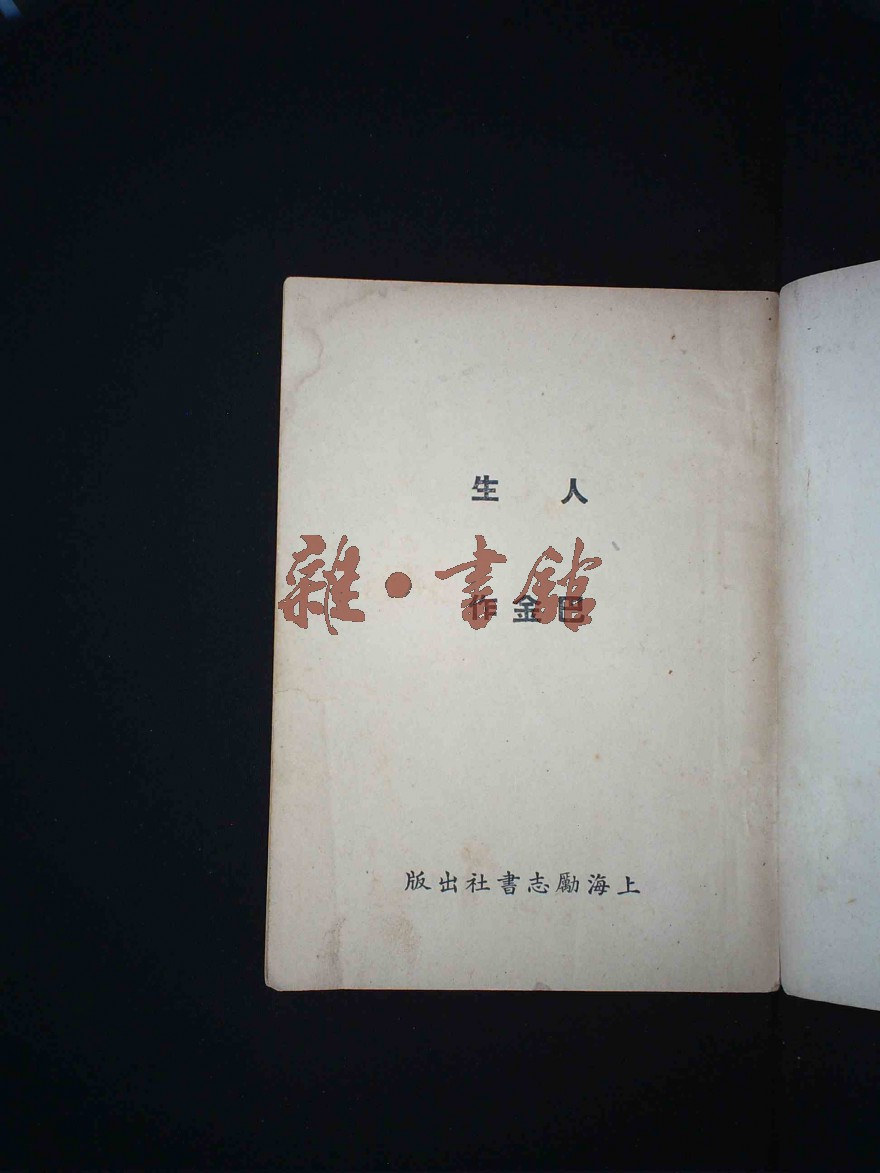 人生
雜·書館
巴金作
上海勵志書社出版